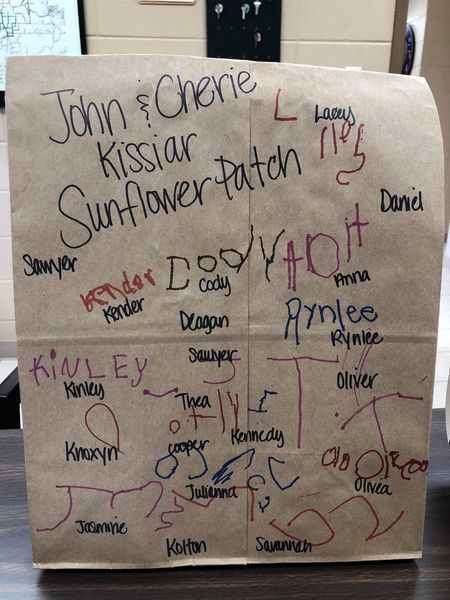 John & Cherie
Kissiar
Sunflower Patch
Lacey
Daniel
Sawyer
Kender
Kender
Cody
Cody
Anna
Deagan
Rynlee
Rynlee
Sawyer
KiNLEY
Kinley
Oliver
Thea
Knoxyn
Cooper
Kennedy
Julianna
Olivea
Jasmine
Kolton
Savannah